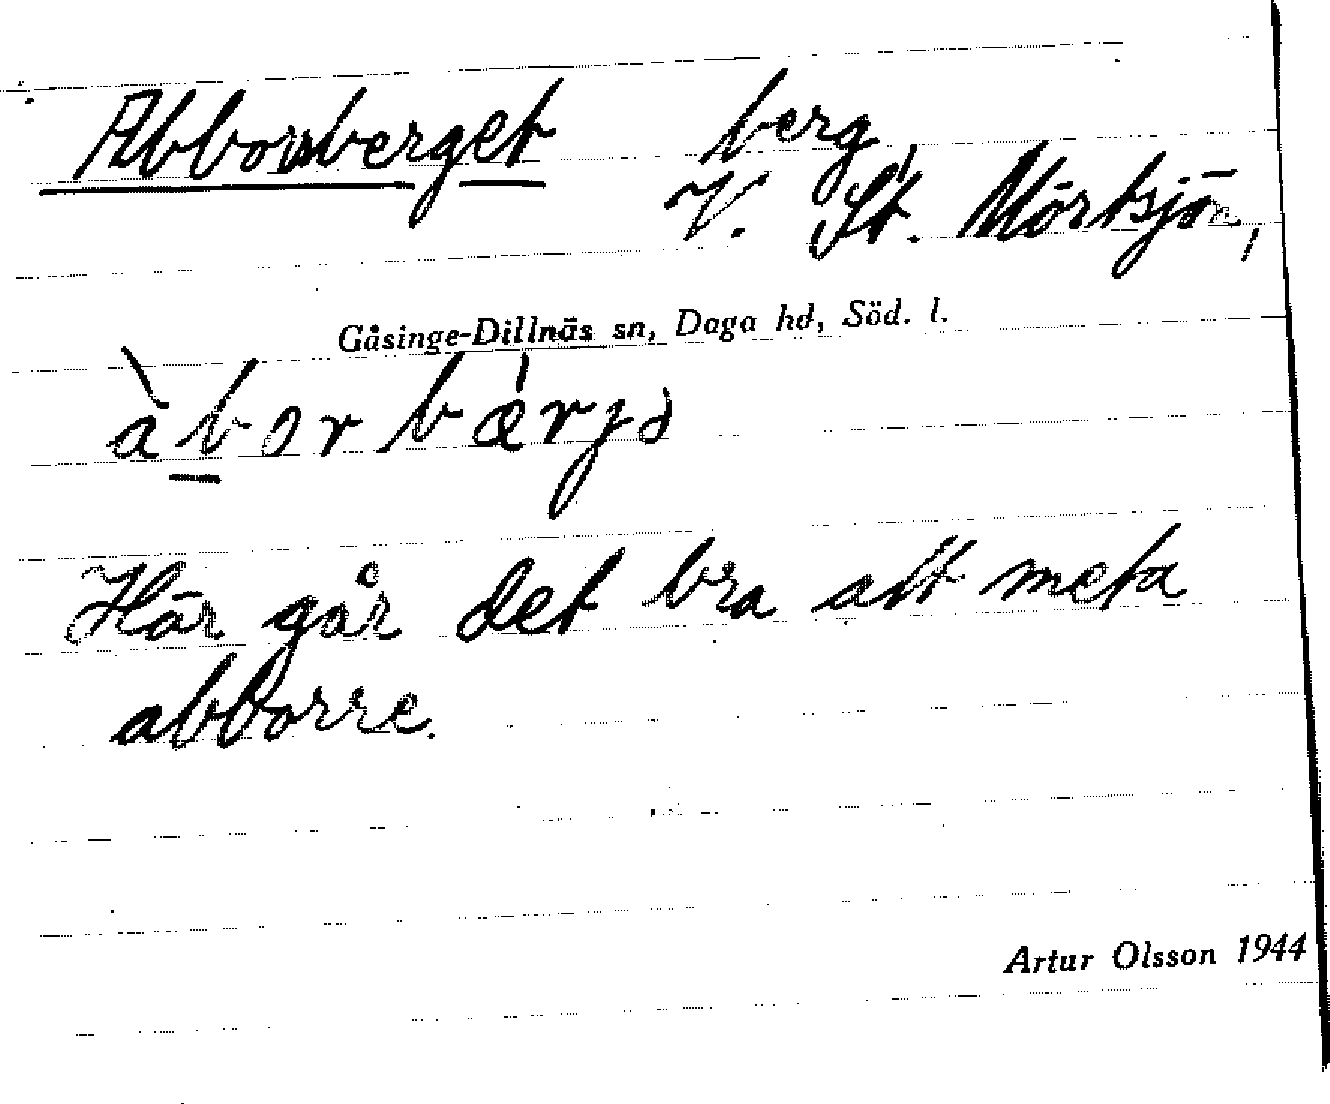 Abborrberget berg
V. St. Mörtsjön,
Gåsinge-Dillnäs sn, Daga hd, Söd. l.
àborbærjə
Här går det bra att meta
abborre.
Artur Olsson 1944